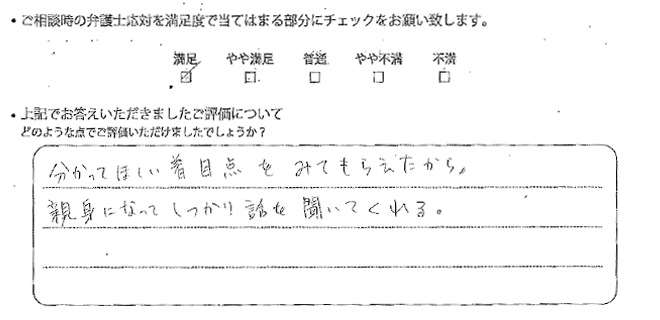 ・ご相談時の弁護士応対を満足度で当てはまる部分にチェックをお願い致します。
満足 やや満足 普通 やや不満 不満
☑ □ □ □ □
・上記でお答えいただきましたご評価について
どのような点でご評価いただけましたでしょうか?
分かってほしい着目点をみてもらえたから。
親身になってしっかり話を聞いてくれる。